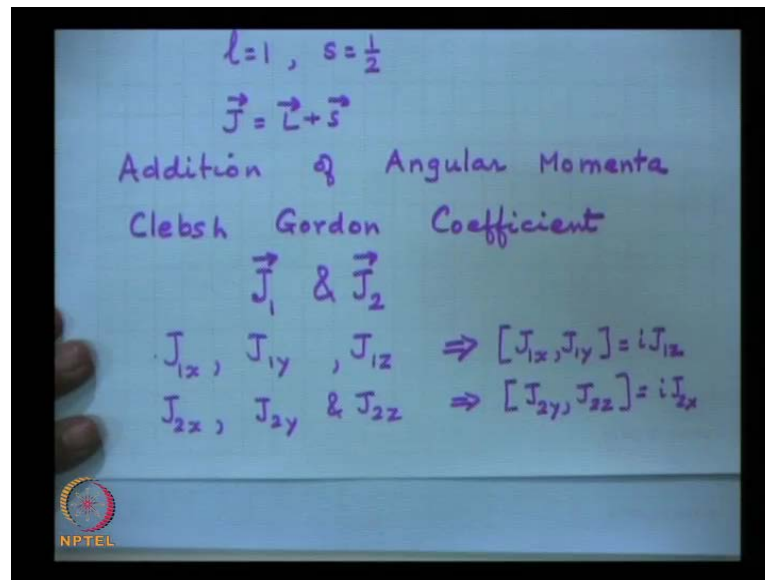 l=1 , s=½
J⃗ = L⃗+S⃗
Addition of Angular Momenta
Clebsh Gordon Coefficient
J⃗₁ & J⃗₂
J₁ₓ , J₁ᵧ , J₁z ⇒ [J₁ₓ,J₁ᵧ]=iJ₁z
J₂ₓ , J₂ᵧ & J₂z ⇒ [J₂ᵧ,J₂z]=iJ₂ₓ
NPTEL